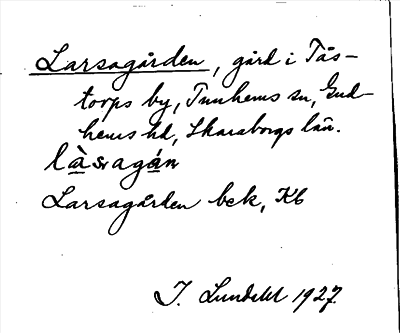 Larsagården, gård i Tås-
torps by, Tunhems sn, Gud-
hems hd, Skaraborgs län.
làsagán
Larsagården bek, Kb
J. Lundahl 1927.